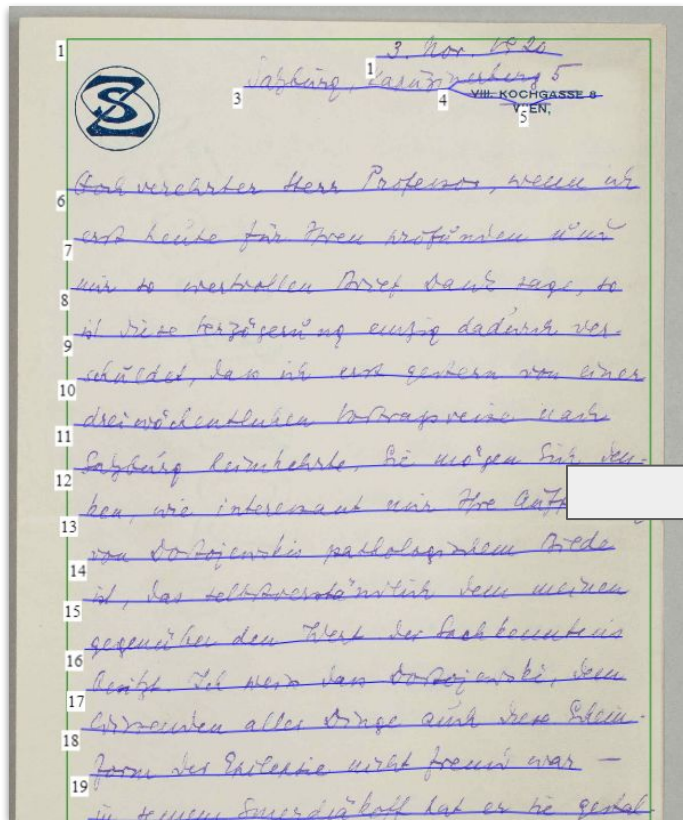 1 3. Nov. 1920
1
3 Salzburg, Kapuzinerberg 5
4 VIII. KOCHGASSE 8
5 WIEN,
SZ
6 Hochverehrter Herr Professor, wenn ich
7 erst heute für Ihren profunden und
8 mir so wertvollen Brief Dank sage, so
9 ist diese Verzögerung einzig dadurch ver-
10 schuldet, dass ich erst gestern von einer
11 dreiwöchentlichen Vortragsreise nach
12 Salzburg heimkehrte. Sie mögen Sich den-
13 ken, wie interessant mir Ihre
14 von Dostojewskis pathologischem Bilde
15 ist, das selbstverständlich dem meinen
16 gegenüber den Wert der Sachkenntnis
17 besitzt. Ich weiss dass Dostojewski, dem
18 Wissenden aller Dinge auch diese Schein-
19 form der Epilepsie nicht fremd war —
in seinem Smerdiakoff hat er sie gestal-